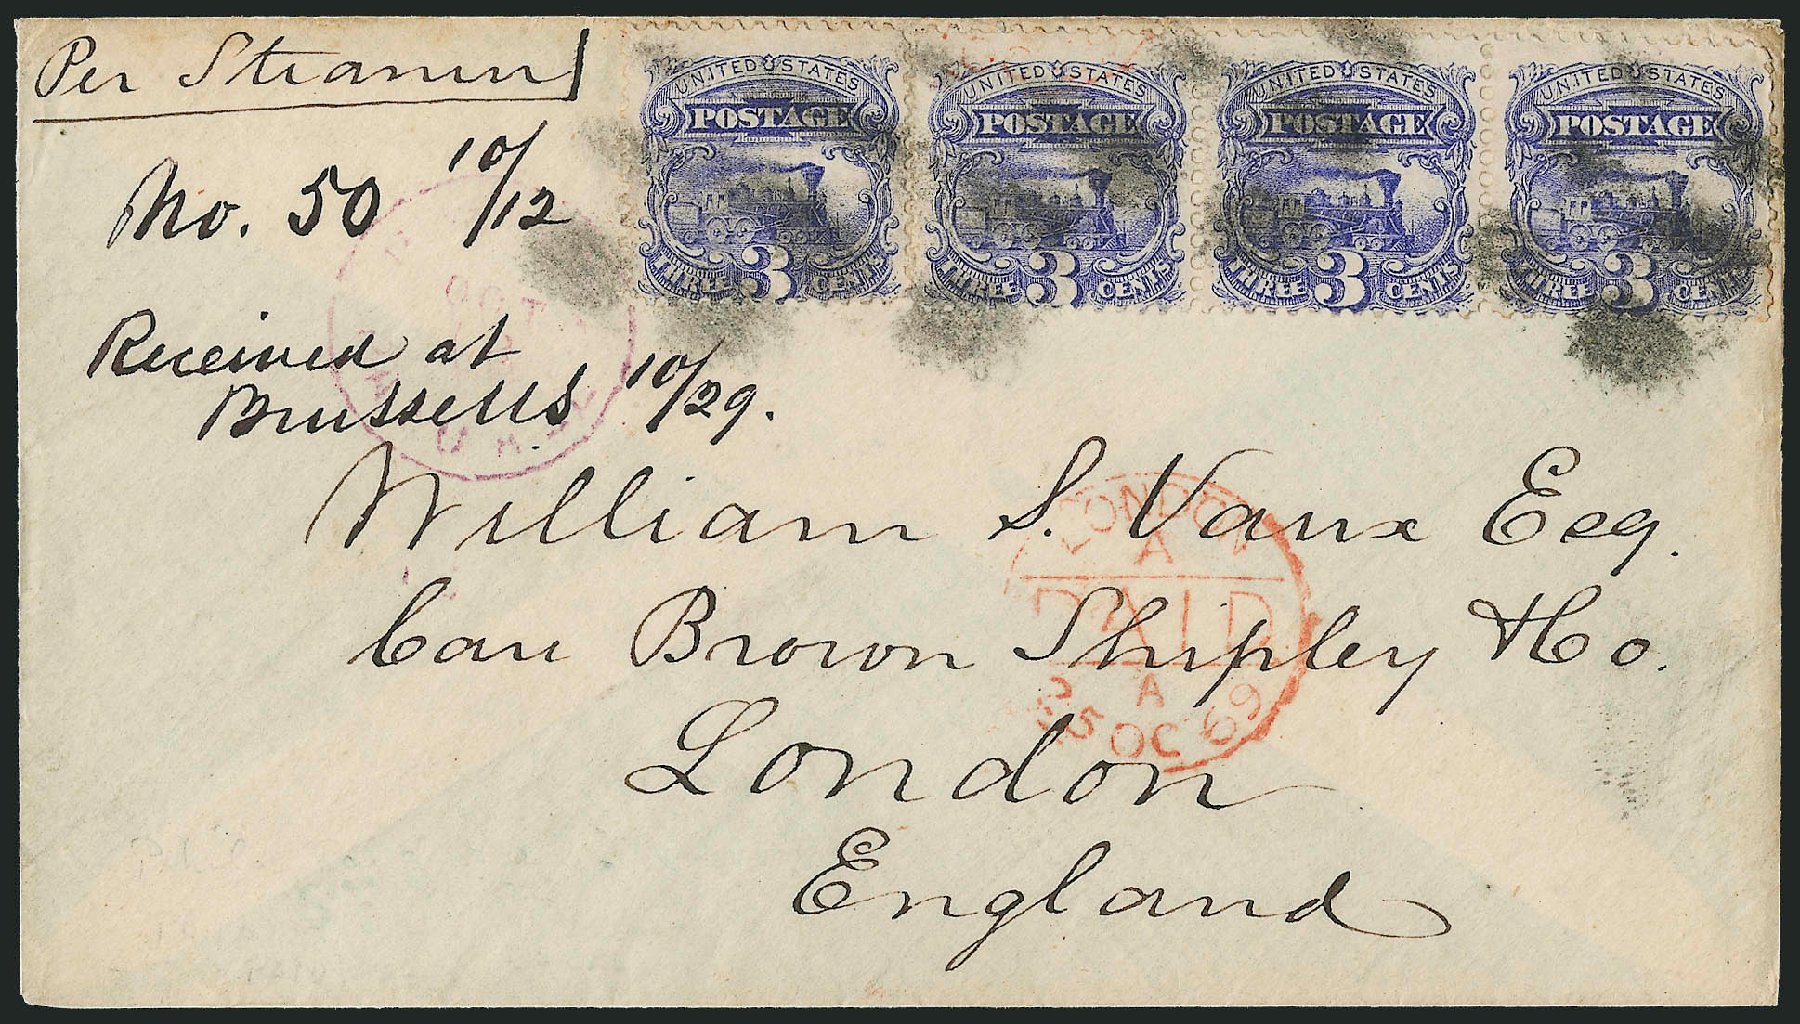 Per Steamer
No. 50 10/12
Received at
Brussells 10/29.
UNITED STATES
POSTAGE
THREE 3 CENTS
UNITED STATES
POSTAGE
THREE 3 CENTS
UNITED STATES
POSTAGE
THREE 3 CENTS
UNITED STATES
POSTAGE
THREE 3 CENTS
William S. Vaux Esq.
Care Brown Shipley & Co.
London
England
LONDON
A
PAID
A
25 OC 69
OCT